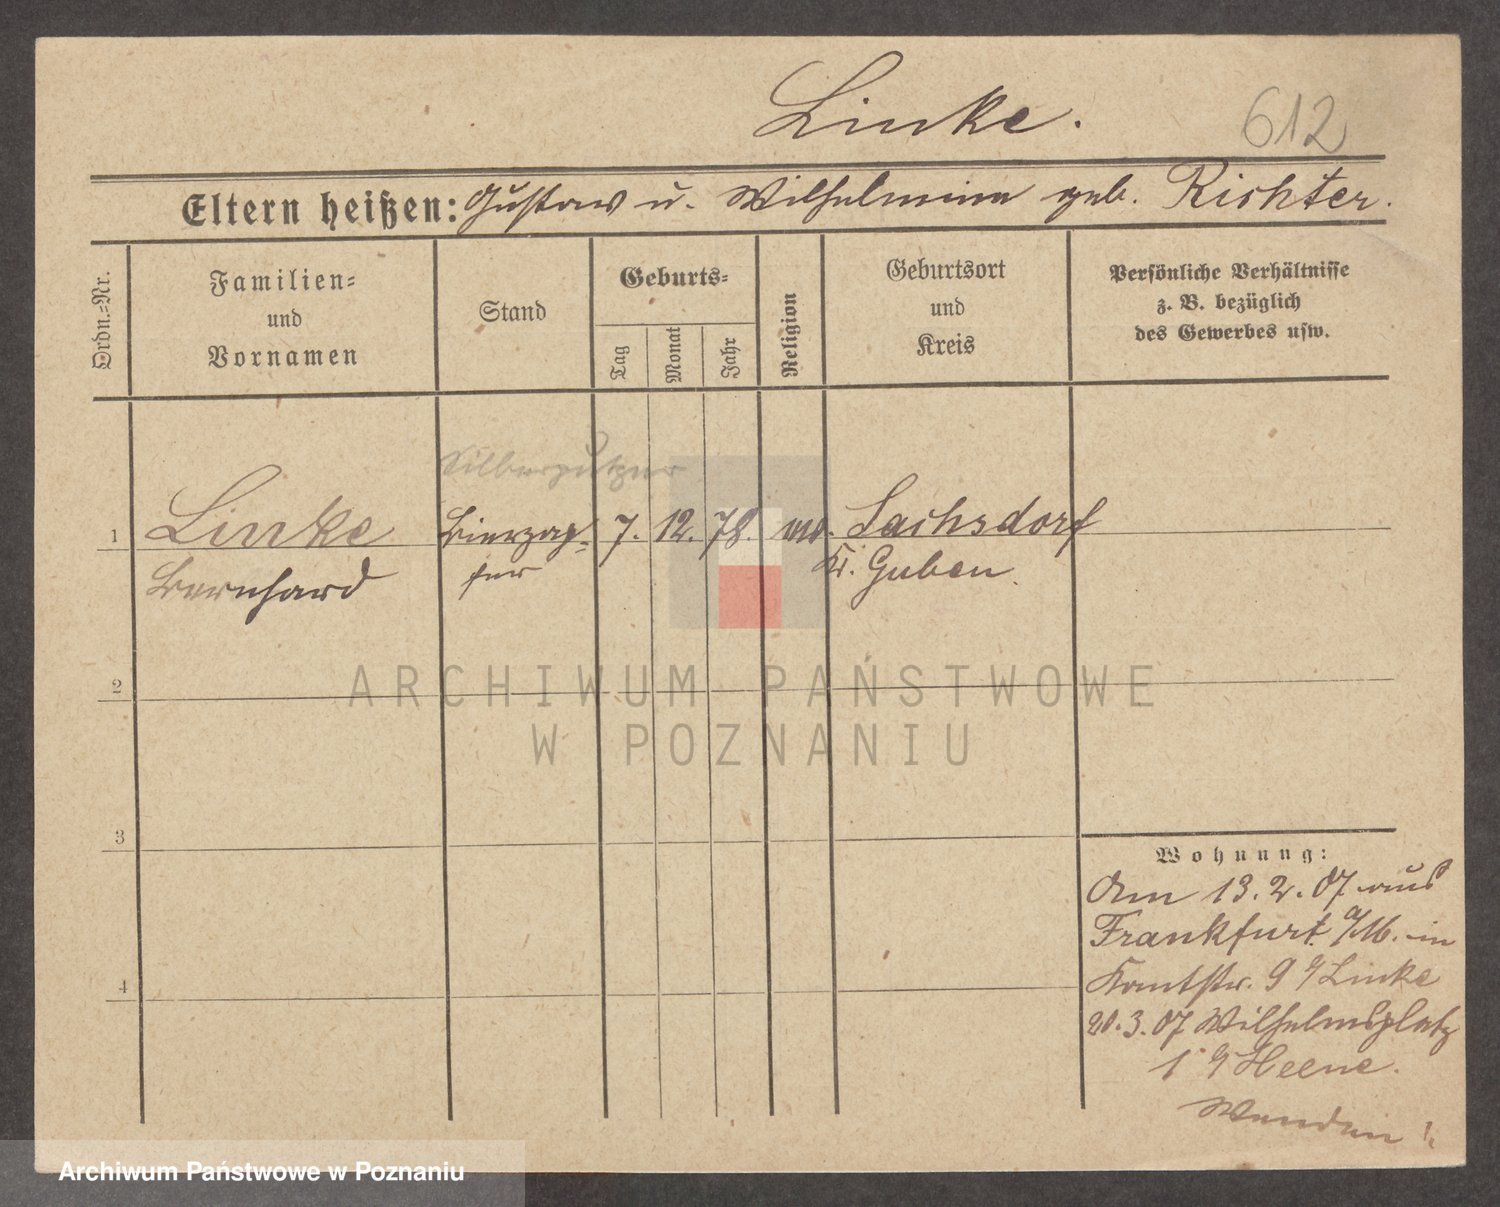 Linke.
612
Eltern heißen: Gustav u. Wilhelmine geb. Richter.
Ordn.=Nr.
Familien=
und
Vornamen
Stand
Geburts=
Tag
Monat
Jahr
Religion
Geburtsort
und
Kreis
Persönliche Verhältnisse
z. B. bezüglich
des Gewerbes usw.
Silberputzer
1 Linke Bierzap= 7. 12. 78. ev. Sachsdorf
Bernhard fer Kr. Guben.
2
3
4
Wohnung:
Am 13.2.07 aus
Frankfurt a/M. in
Kantstr. 9 b/Linke
20.3.07 Wilhelmsplatz
1 b/Heene.
Wenden!
ARCHIWUM PAŃSTWOWE
W POZNANIU
Archiwum Państwowe w Poznaniu